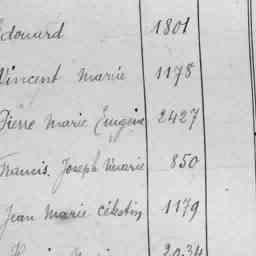 Edouard 1801
Vincent Marie 1178
Pierre Marie Eugène 2427
Francis Joseph Marie 850
Jean Marie Célestin 1179
2034